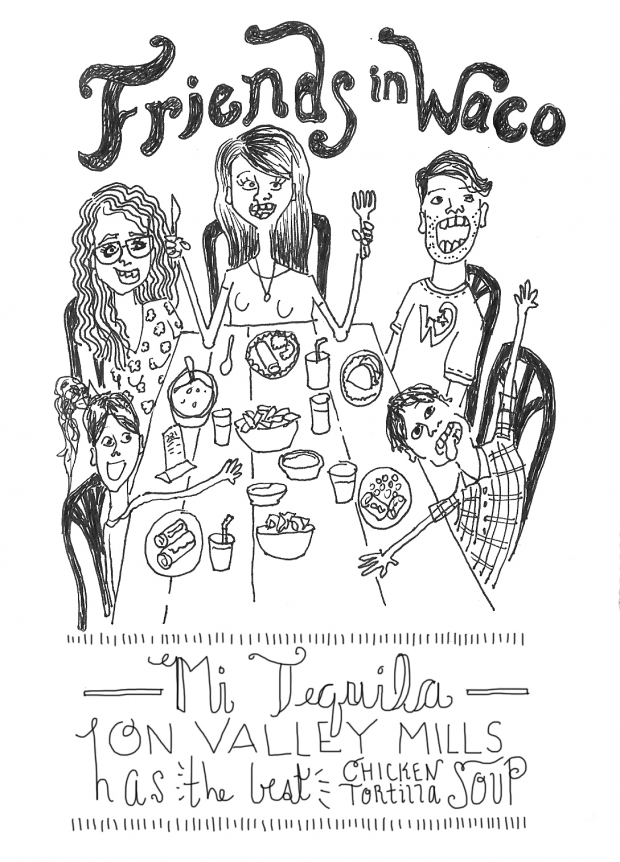 Friends in Waco
W
Mi Tequila
ON VALLEY MILLS
has the best CHICKEN TORTILLA SOUP